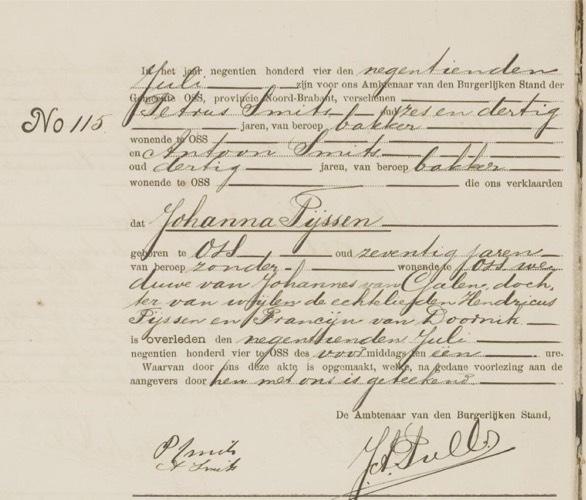 In het jaar negentien honderd vier den negentienden
Juli zijn voor ons Ambtenaar van den Burgerlijken Stand der
Gemeente OSS, provincie Noord-Brabant, verschenen
Petrus Smits oud zes en dertig
No 115. jaren, van beroep bakker
wonende te OSS
en Antoon Smits
oud dertig jaren, van beroep bakker
wonende te OSS die ons verklaarden
dat Johanna Pijssen
geboren te OSS oud zeventig jaren
van beroep zonder wonende te Oss, we
duwe van Johannes van Galen, doch,
ter van wijlen de echtelieden Hendricus
Pijssen en Francijn van Doornik
is overleden den negentienden Juli
negentien honderd vier te OSS des voor middags ten één ure.
Waarvan door ons deze akte is opgemaakt, welke, na gedane voorlezing aan de
aangevers door hen met ons is geteekend
De Ambtenaar van den Burgerlijken Stand,
P Smits
A Smits